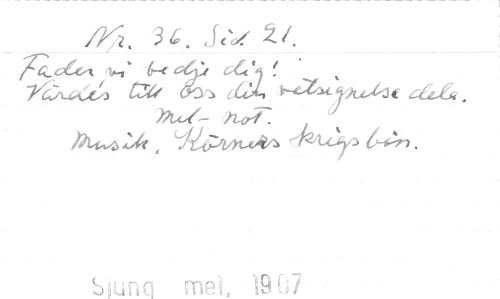 Nr. 36. Sid. 21.
Fader vi bedje dig!
Värdes till oss din velsignelse dela.
mel- not.
Musik. Körners krigsbön.
Sjung mel, 1907